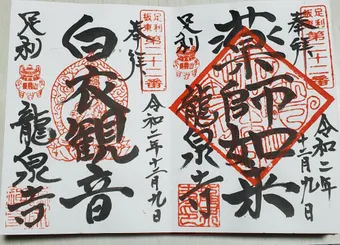 足利
坂東
第二十二番
奉拝
薬師如来
令和二年
十二月九日
足利
龍泉寺
足利
坂東
第二十一番
奉拝
白衣観音
令和二年十二月九日
足利
龍泉寺